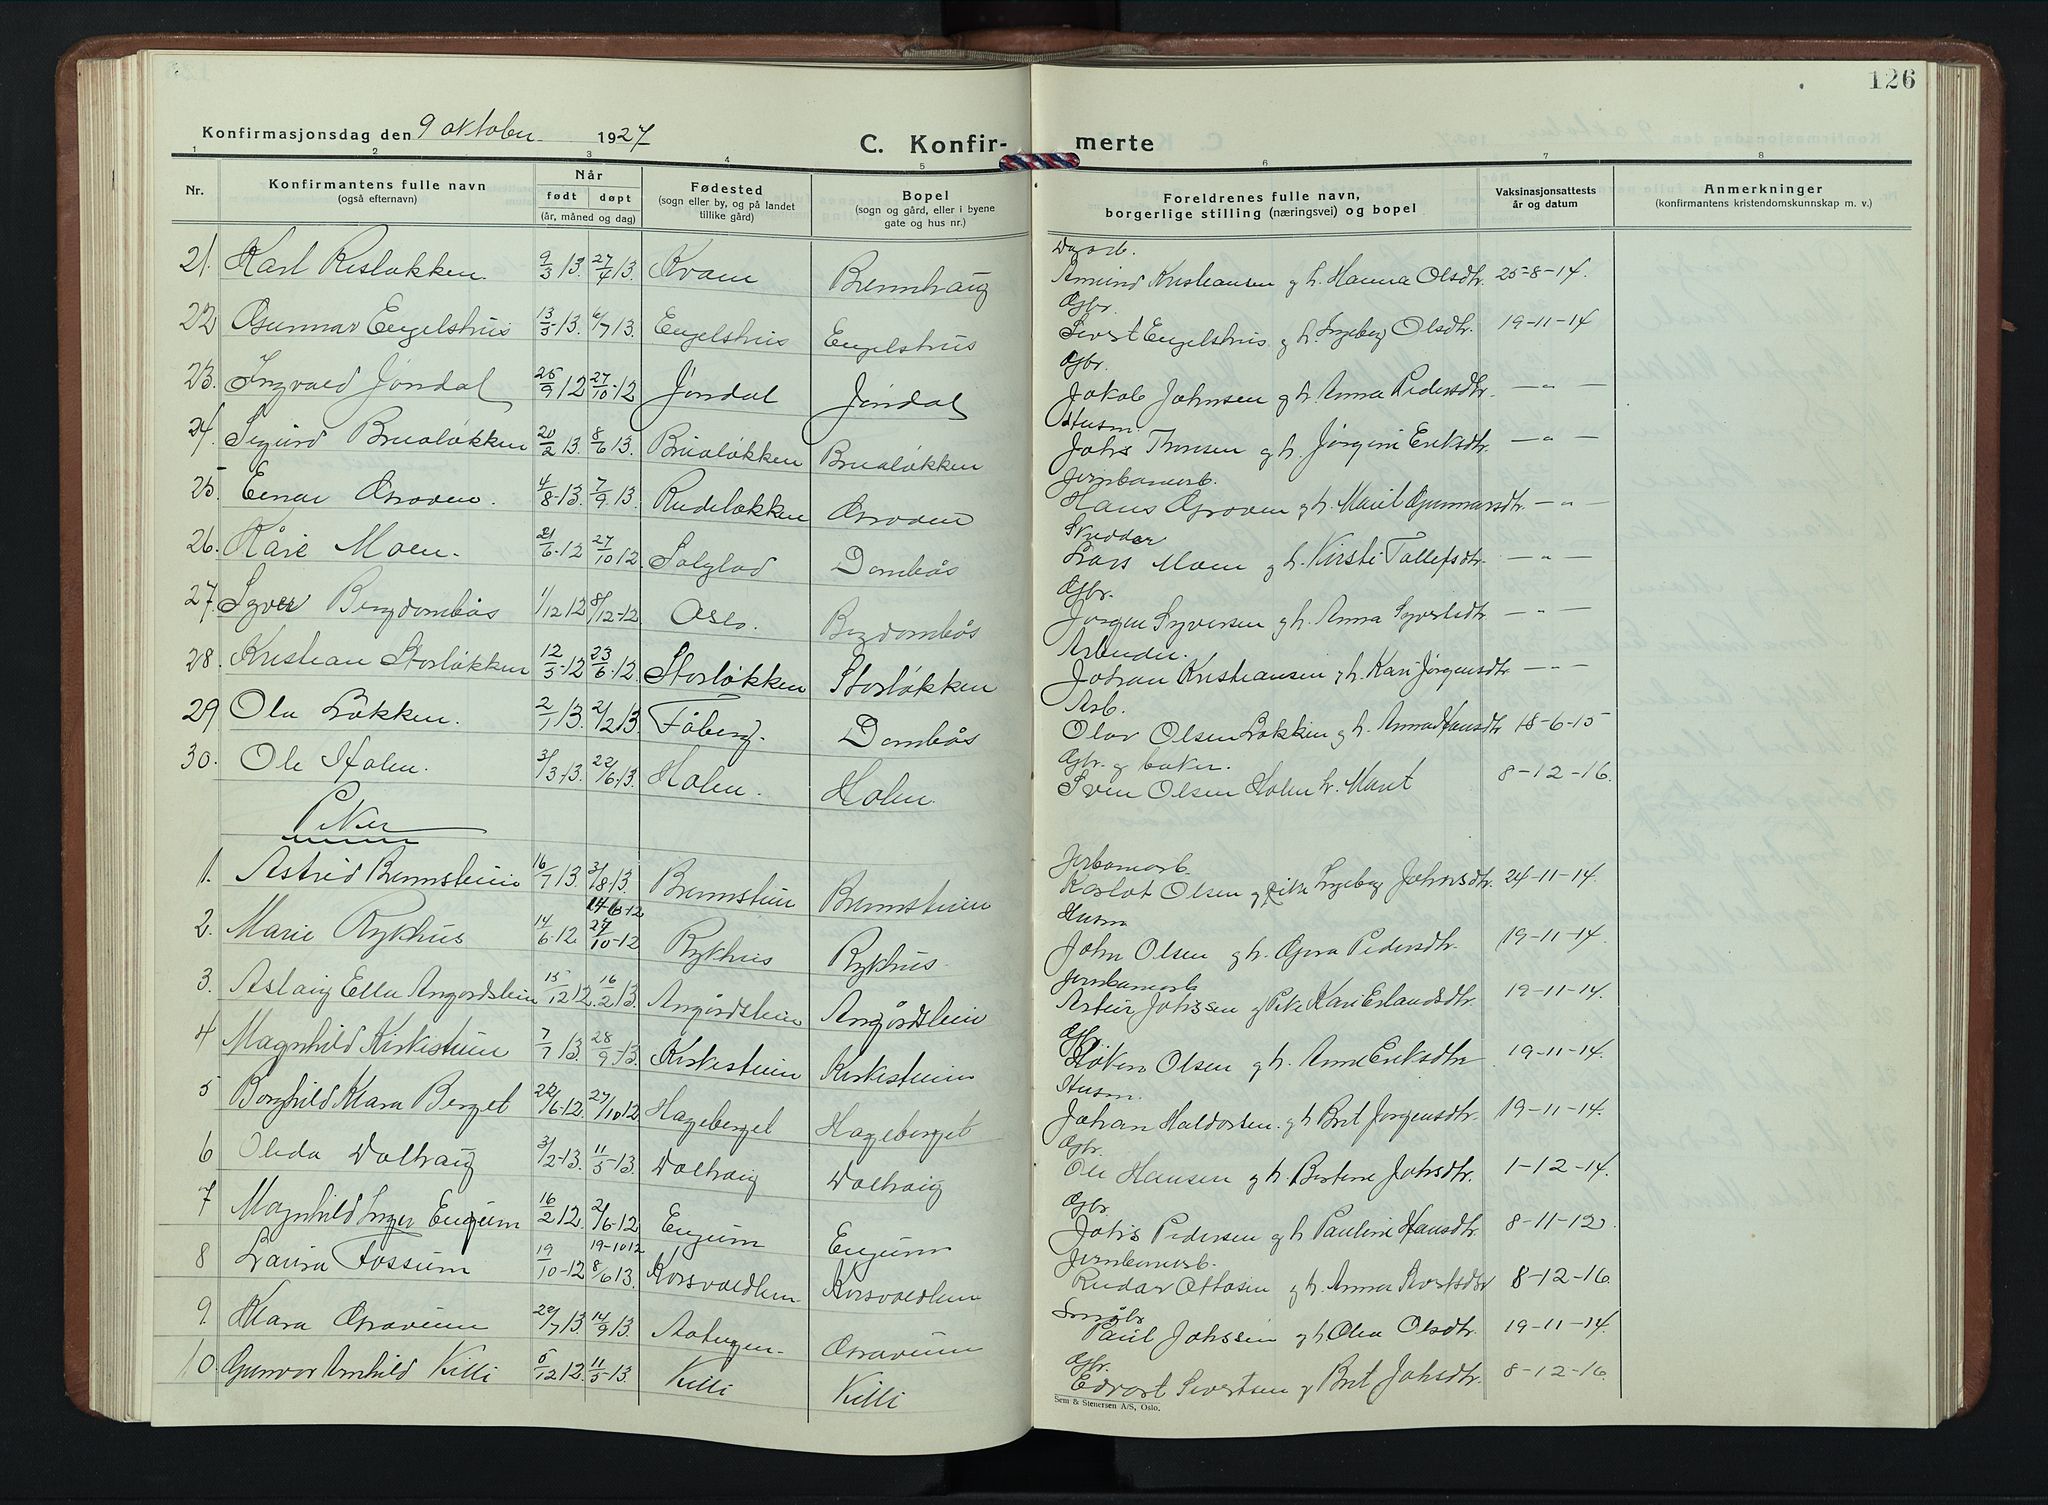 126
Konfirmasjonsdag den 9 oktober 1927
C. Konfir- merte
1 2 3 4 5 6 7 8
Nr.
Konfirmantens fulle navn
(også efternavn)
Når
født døpt
(år, måned og dag)
Fødested
(sogn eller by, og på landet
tillike gård)
Bopel
(sogn og gård, eller i byene
gate og hus nr.)
Foreldrenes fulle navn,
borgerlige stilling (næringsvei) og bopel
Vaksinasjonsattests
år og datum
Anmerkninger
(konfirmantens kristendomskunnskap m. v.)
Dagarb.
21. Karl Risløkken 9/3 13. 27/4 13. Kvam Brennhaug Amund Kristiansen g h. Hanna Olsdtr. 25-8-14.
Gbr.
22 Gunnar Engelshus 13/5-13. 6/7 13. Engelshus Engelshus Sivert Engelshus g h. Ingebg Olsdtr. 19-11-14
Gbr.
23. Ingvald Jøndal 25/9 12 27/10-12 Jøndal Jøndal Jakob Johnsen g h. Anna Pedersdtr. — " —
Husm.
24. Sigurd Brualøkken 20/2 13. 8/6 13. Brualøkken Brualøkken Johs Thomsen g h. Jørgine Eriksdtr — " —
Jernbanearb.
25. Einar Graven. 4/8-13. 7/9.13. Rudeløkken Graven Hans Graven g h. Marit Gunnarsdtr. — " —
Skredder
26. Kåre Moen. 21/6-12 27/10 12 Solglad Dombås Lars Moen g h. Kirsti Tollefsdtr. — " —
Gbr.
27. Syver Bergdombås 1/12 12 8/12-12 Oslo. Bergdombås Jørgen Syversen g h. Anna Syversdtr — " —
Arbeider.
28. Kristian Storløkken 12/5-12 23/6-12. Storløkken Storløkken Johan Kristiansen g h. Kari Jørgensdtr — " —
Arb.
29 Ola Løkken. 2/1 13. 2/2 13 Fåberg. Dombås Olav Olsen Løkken g h. Anna Hansdtr 18-6-15
Gbr. g baker.
30. Ole Holen. 3/3.13. 22/6.13. Holen. Holen. Sven Olsen Holen h. Marit 8-12-16.
Piker
Jerbanearb.
1. Astrid Brennstuen 16/7 13. 31/8 13. Brennstuen Brennstuen Karlot Olsen g Ingebg Johnsdtr. 24-11-14.
14-6-12
Husm
2. Marie Rykhus 14/6-12 27/10-12 Rykhus Rykhus. John Olsen g h. Gjøra Pedersdtr. 19-11-14.
Jernbanearb
3. Aslaug Ella Angårdsteien 15/12 12 16/2 13. Angårdsteien Angårdsteien Artur Johssen g Pike Kari Erlandsdtr. 19-11-14.
Gbr
4 Magnhild Kirkestuen 7/7 13. 28/9-13. Kirkestuen Kirkestuen Håken Olsen g h. Anne Eriksdtr 19-11-14.
Husm.
5 Borghild Klara Berget 22/6-12. 27/10 12 Hageberget Hageberget Johan Haldorsen. g h Brit Jørgensdtr. 19-11-14.
Gbr.
6 Olida Dalhaug 3/2-13. 11/5-13. Dalhaug Dalhaug Ole Hansen g h. Bertine Johsdtr. 1-12-14.
Gbr.
7 Magnhild Inger Engum 16/2 12. 2/6-12 Engum Engum Johs Pedersen g h Pauline Hansdtr 8-11-12.
19-10 12
Jernbanearb.
8 Laura Fossum 19/10-12 8/6 13. Korsvoldlien Korsvoldlien Reidar Ottosen g h. Anna Sivertsdtr 8-12-16
9. Klara Graveien 22/7 13. 14/9 13. Graveien Paul Johssen g h Olea Olsdtr. 19-11-14.
Gbr.
10. Gunvor Arnhild Killi 5/12 12. 11/5-13. Killi Killi Edvart Sivertsen g Brit Johsdtr. 8-12-16.
Sem & Stenersen A/S, Oslo.